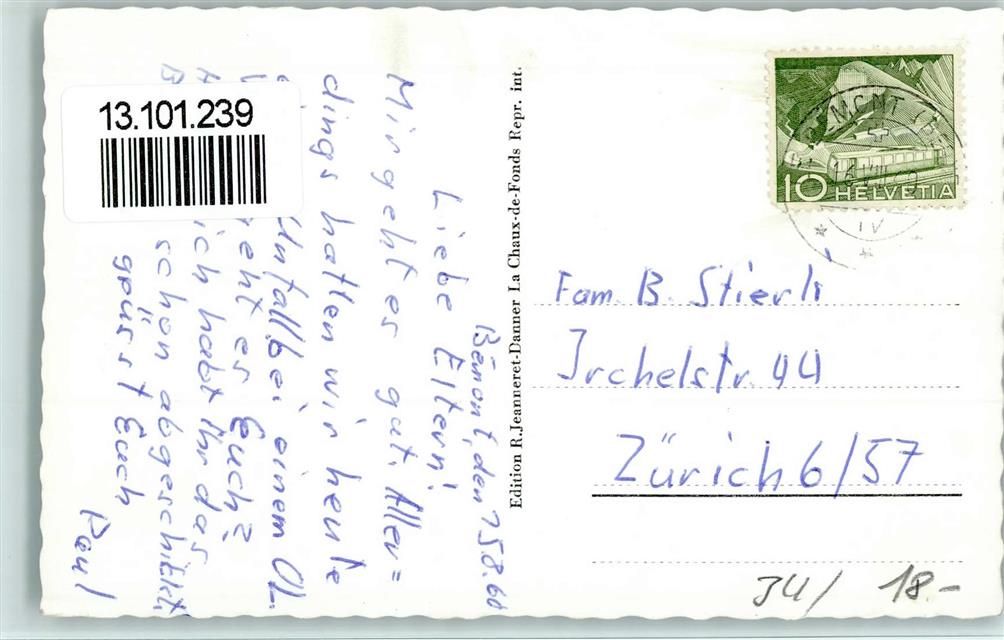 13.101.239
Bémont, den 15.8.60
Liebe Eltern!
Mir geht es gut. Aller=
dings hatten wir heute
Unfall bei einem OL.
geht es Euch?
ich habt Ihr das
schon abgeschickt.
grüsst Euch
Paul
Edition R. Jeanneret-Danner La Chaux-de-Fonds Repr. int.
10 HELVETIA
Fam. B. Stierli
Irchelstr. 44
Zürich 6/57
JU/ 18.-